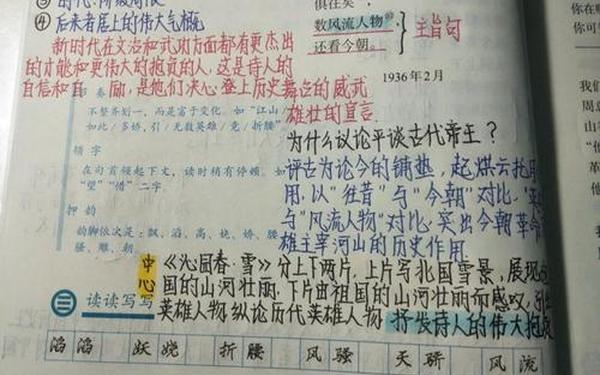 ④后来者居上的伟大气概
俱往矣，
数风流人物
还看今朝。
主旨句
1936年2月
新时代在文治和武功方面都有更杰出
的才能和更伟大的抱负的人，这是诗人的
自信和自励，是他们决心登上历史舞台的威武
雄壮的宣言
奏
不整齐划一，而是富于变化。如“江山/
如此/多娇，引/无数英雄/竞/折腰”
领字
在句首领起下文，读时稍有停顿。如
“望”“惜”二字。
押韵
韵脚依次是：飘、滔、高、娆、娇、腰
骚、雕、朝
为什么议论平谈古代帝王？
评古为论今的铺垫，起烘云托月
用，以“往昔”与“今朝”对比，
与“风流人物”对比，突出今朝革命
雄主宰河山的历史作用
中心
《沁园春·雪》分上下两片，上片写北国雪景，展现
国的山河壮丽，下片由祖国的山河壮丽而感叹，
英雄人物，纵论历代英雄人物，抒发诗人的伟大抱负
三 读读写写
滔滔 妖娆 折腰 风骚 天骄 风流